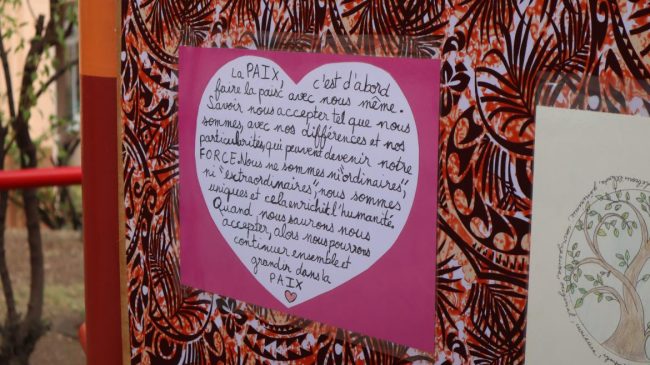 La PAIX, c'est d'abord
faire la paix avec nous même.
Savoir nous accepter tel que nous
sommes, avec nos différences et nos
particularités, qui peuvent devenir notre
FORCE. Nous ne sommes ni "ordinaires",
ni "extraordinaires", nous sommes
uniques et cela enrichit l'humanité.
Quand nous saurons nous
accepter, alors nous pourrons
continuer ensemble et
grandir dans la
PAIX